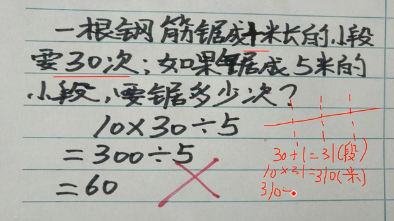 一根钢筋锯成十米长的小段
要30次；如果锯成5米的
小段，要锯多少次？
10×30÷5
=300÷5
=60
30+1=31(段)
10×31=310(米)
310-